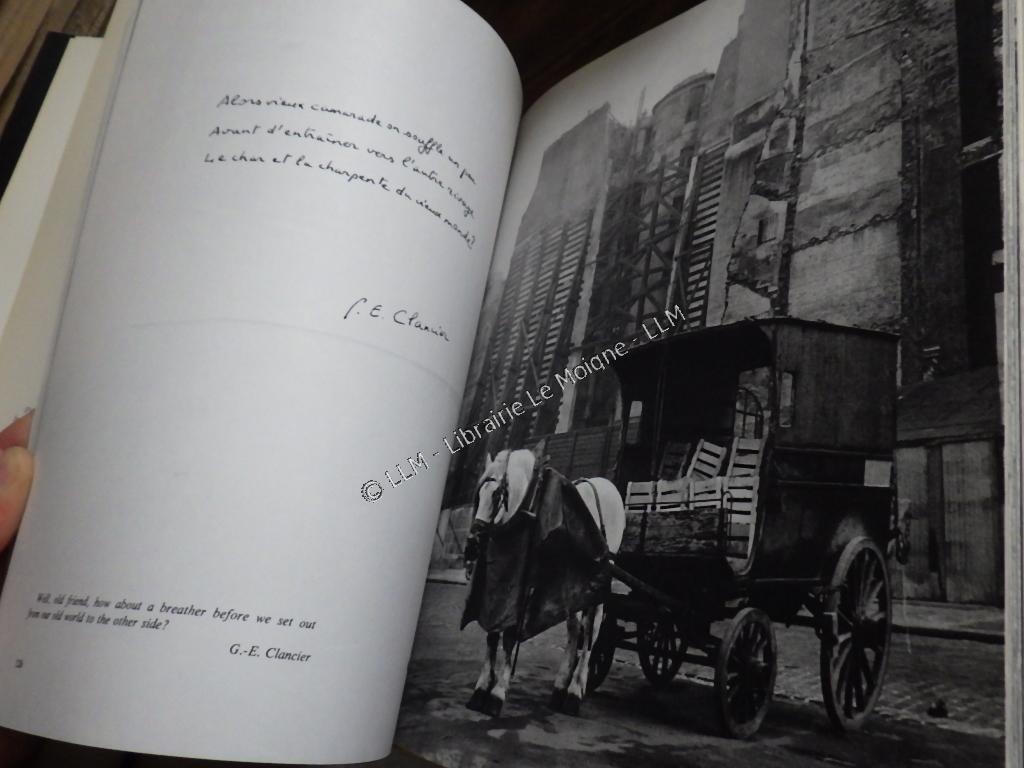 Alors vieux camarade on souffle un peu
Avant d'entraîner vers l'autre rivage
Le char et la charpente du vieux monde ?
G. E. Clancier
© LLM - Librairie Le Moigne - LLM
Well, old friend, how about a breather before we set out
from our old world to the other side?
G.-E. Clancier